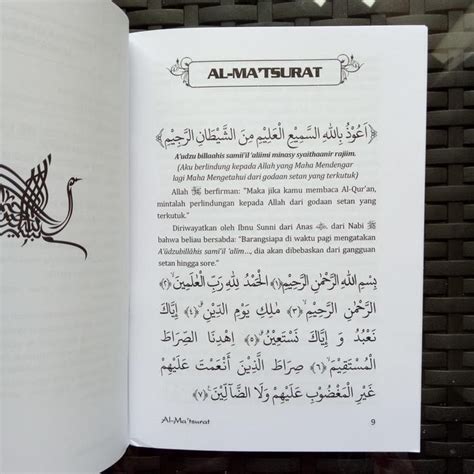 AL-MA'TSURAT
﴿اَعُوْذُ بِاللهِ السَّمِيْعِ الْعَلِيْمِ مِنَ الشَّيْطَانِ الرَّجِيْمِ﴾
A'udzu billaahis samii'il 'aliimi minasy syaithaanir rajiim.
(Aku berlindung kepada Allah yang Maha Mendengar
lagi Maha Mengetahui dari godaan setan yang terkutuk)
Allah ﷻ berfirman: "Maka jika kamu membaca Al-Qur'an,
mintalah perlindungan kepada Allah dari godaan setan yang
terkutuk."
Diriwayatkan oleh Ibnu Sunni dari Anas dari Nabi ﷺ
bahwa beliau bersabda: "Barangsiapa di waktu pagi mengatakan
A'ûdzubillâhis samî'il 'alîm..., dia akan dibebaskan dari gangguan
setan hingga sore."
بِسْمِ اللهِ الرَّحْمٰنِ الرَّحِيْمِ ﴿١﴾ اَلْحَمْدُ لِلّٰهِ رَبِّ الْعٰلَمِيْنَ ﴿٢﴾
الرَّحْمٰنِ الرَّحِيْمِ ﴿٣﴾ مٰلِكِ يَوْمِ الدِّيْنِ ﴿٤﴾ إِيَّاكَ
نَعْبُدُ وَ إِيَّاكَ نَسْتَعِيْنُ ﴿٥﴾ اِهْدِنَا الصِّرَاطَ
الْمُسْتَقِيْمَ ﴿٦﴾ صِرَاطَ الَّذِيْنَ أَنْعَمْتَ عَلَيْهِمْ
غَيْرِ الْمَغْضُوْبِ عَلَيْهِمْ وَلَا الضَّآلِّيْنَ ﴿٧﴾
Al-Ma'tsurat 9